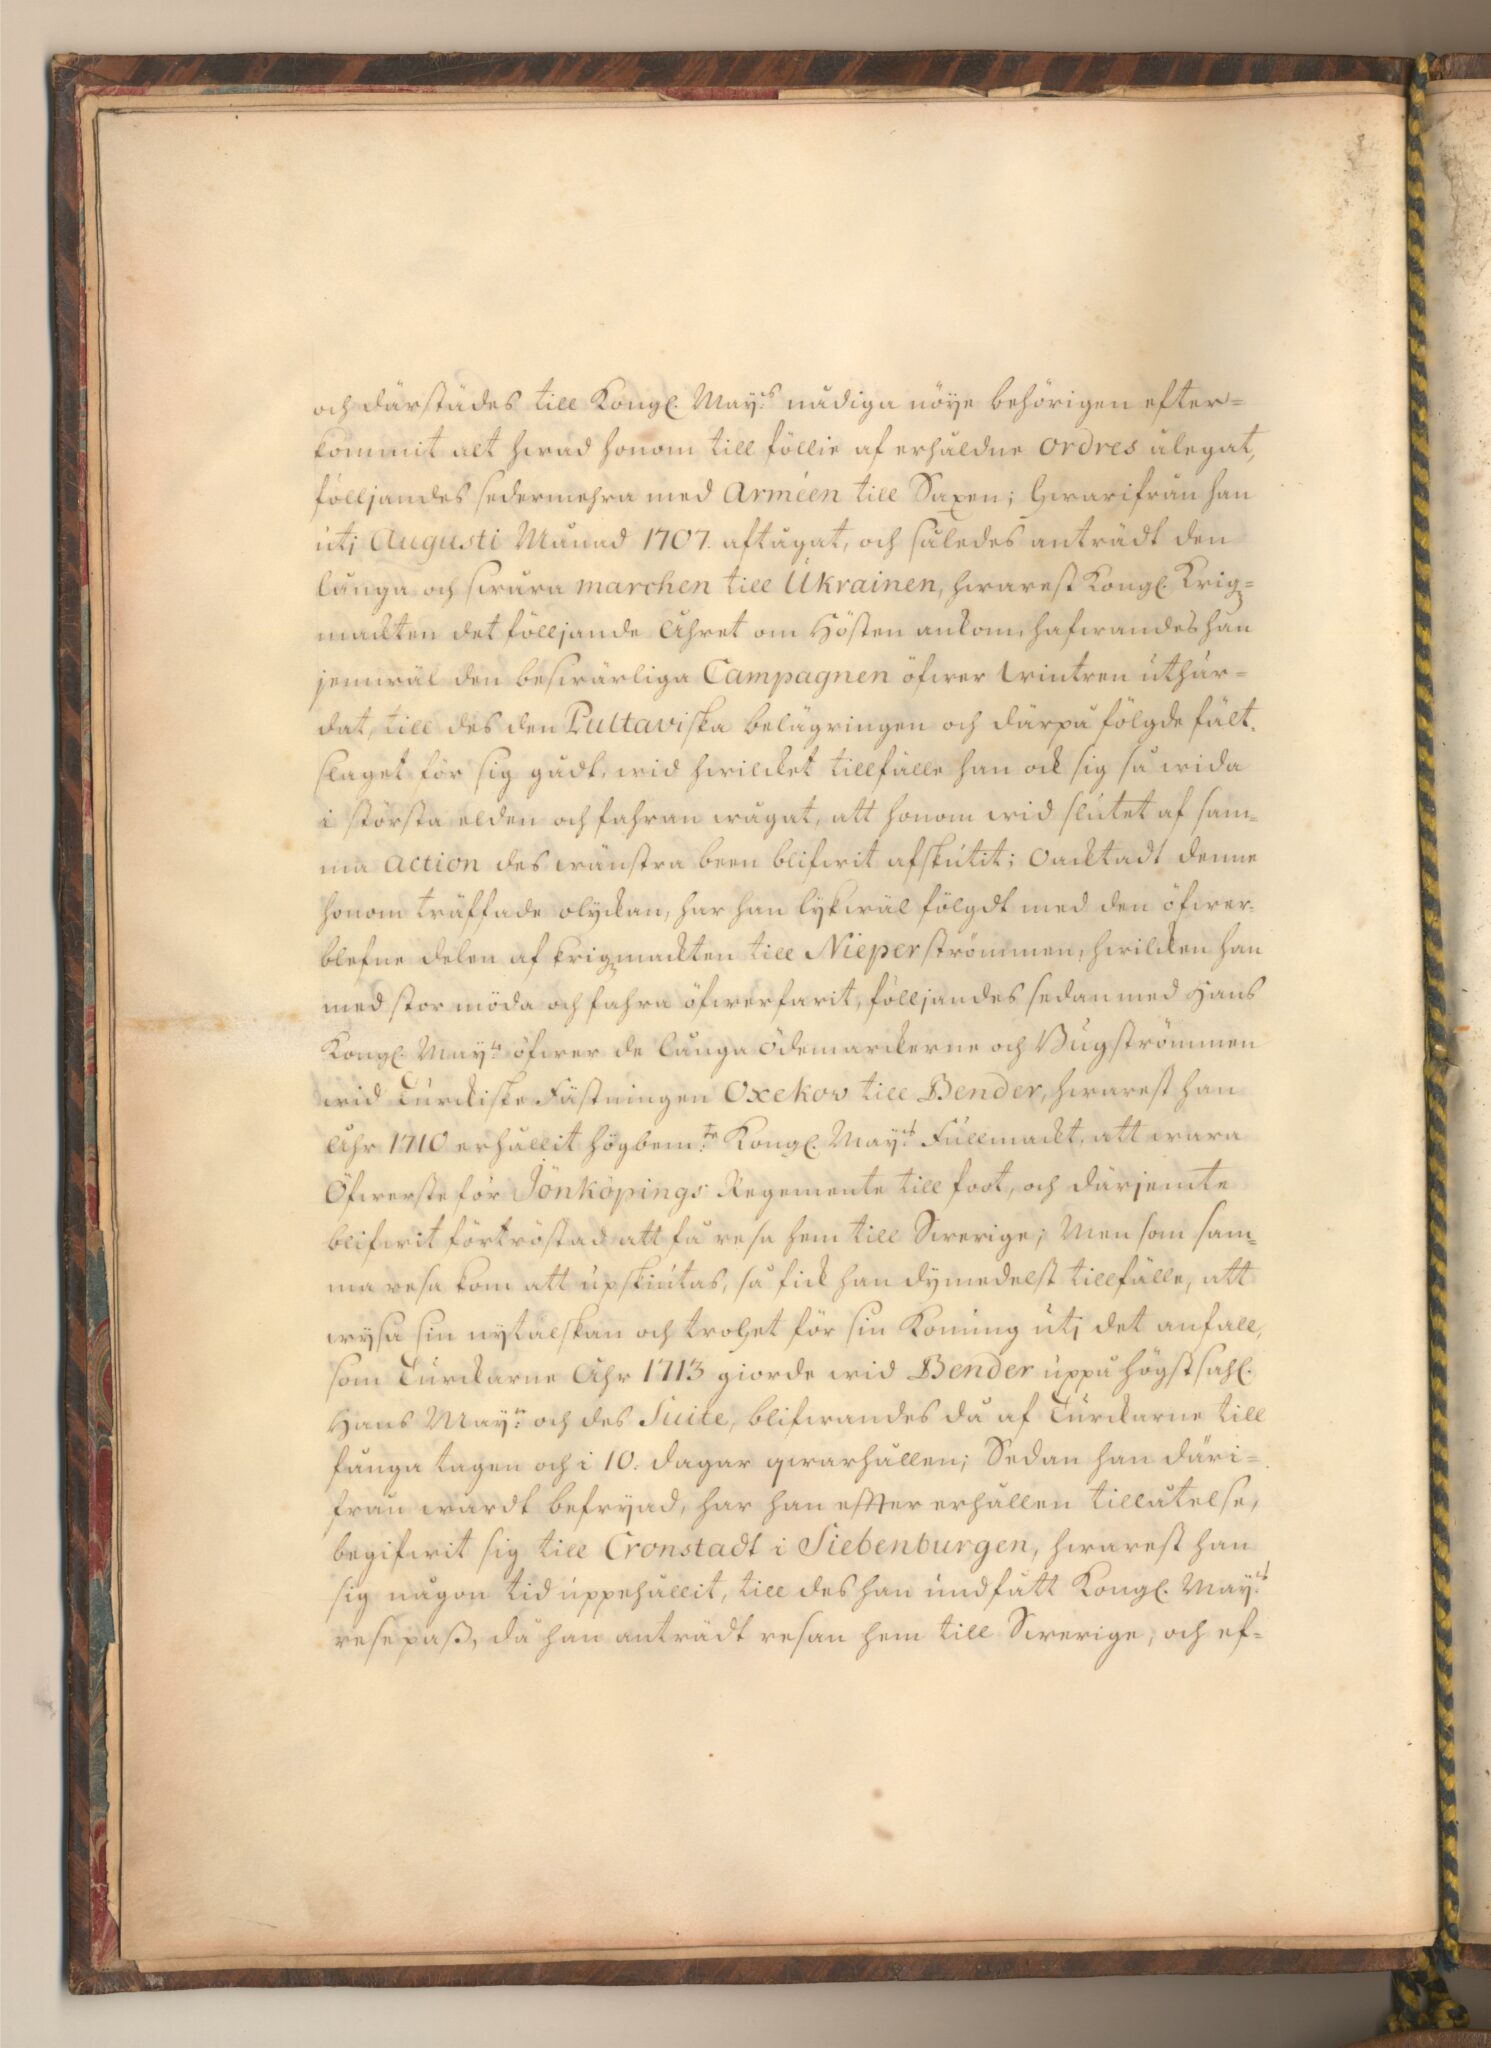 och därstädes till Kongl. May:tz nådiga nöye behörigen efter-
kommit alt hwad honom till föllie af erhåldne ordres ålegat,
följandes sedermehra med Arméen till Saxen; hwarifrån han
utj Augusti Månad 1707. aftågat, och således anträdt den
långa och swåra marchen till Ukrainen, hwarest Kongl. Krigz-
mackten det följande Åhret om Hösten ankom, hafwandes han
jemwäl den beswärliga Campagnen öfwer wintren uthär-
dat, till des den Pultaviska belägringen och därpå fölgde fält-
slaget för sig gådt, wid hwilcket tillfälle han ock sig så wida
i största elden och fahran wågat, att honom wid slutet af sam-
ma action des wänstra been blifwit afskutit; Oacktadt denne
honom träffade olyckan, har han lykwäl fölgdt med den öfwer-
blefne delen af krigzmackten till Nieperströmmen, hwilcken han
med stor möda och fahra öfwerfarit, följandes sedan med Hans
Kongl. May:tt öfwer de långa ödemarckerne och Bugströmmen
wid Turckiske Fästningen Oxekov till Bender, hwarest han
Åhr 1710 erhållit högbem:te Kongl. May:tz Fullmackt, att wara
Öfwerste för Jönköpings Regemente till foot, och därjemte
blifwit förtröstad att få resa hem till Swerige; Men som sam-
ma resa kom att upskiutas, så fick han dymedelst tillfälle, att
wysa sin nytälskan och trohet för sin Konung utj det anfall,
som Turckarne Åhr 1713 giorde wid Bender uppå högstsahl.
Hans May:tt och des Suite, blifwandes då af Turckarne till
fånga tagen och i 10. dagar qwarhållen; Sedan han däri-
från wardt befryad, har han effter erhållen tillåtelse,
begifwit sig till Cronstadt i Siebenburgen, hwarest han
sig någon tid uppehållit, till des han undfått Kongl. May:tz
resepaß, då han anträdt resan hem till Swerige, och ef-